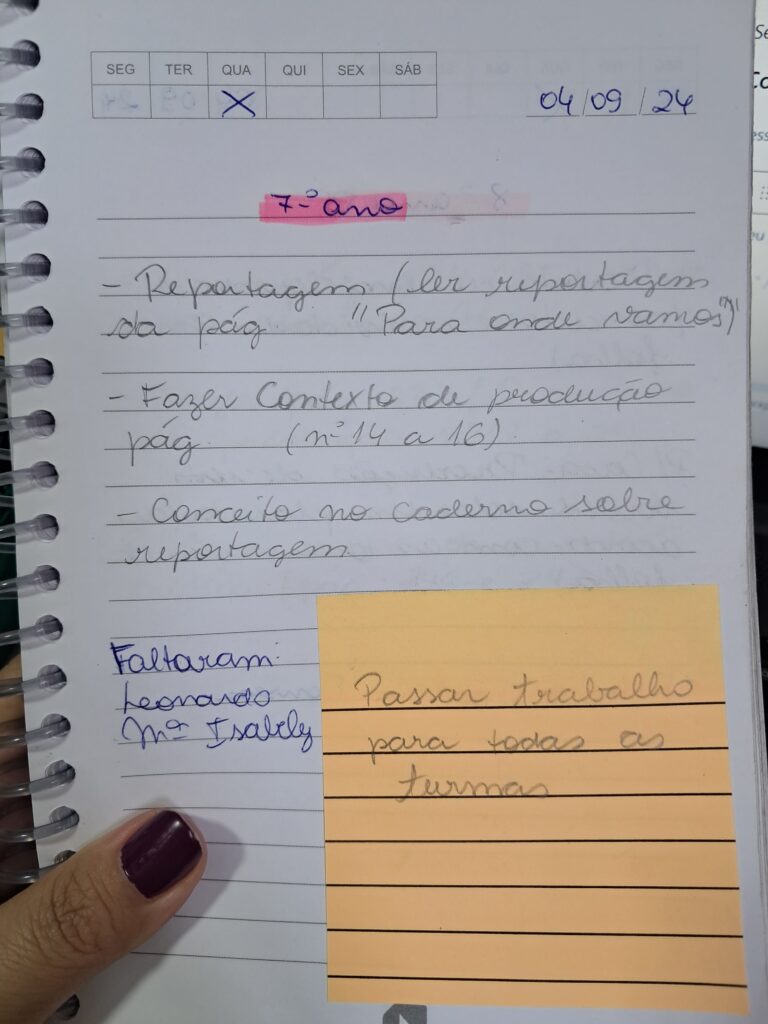 SEG TER QUA QUI SEX SÁB
X
04/09/24
7º ano
- Reportagem (ler reportagem
da pág. "Para onde vamos")
- Fazer Contexto de produção
pág. (nº 14 a 16).
- Conceito no caderno sobre
reportagem
Faltaram:
Leonardo
Mª Isabely
Passar trabalho
para todas as
turmas